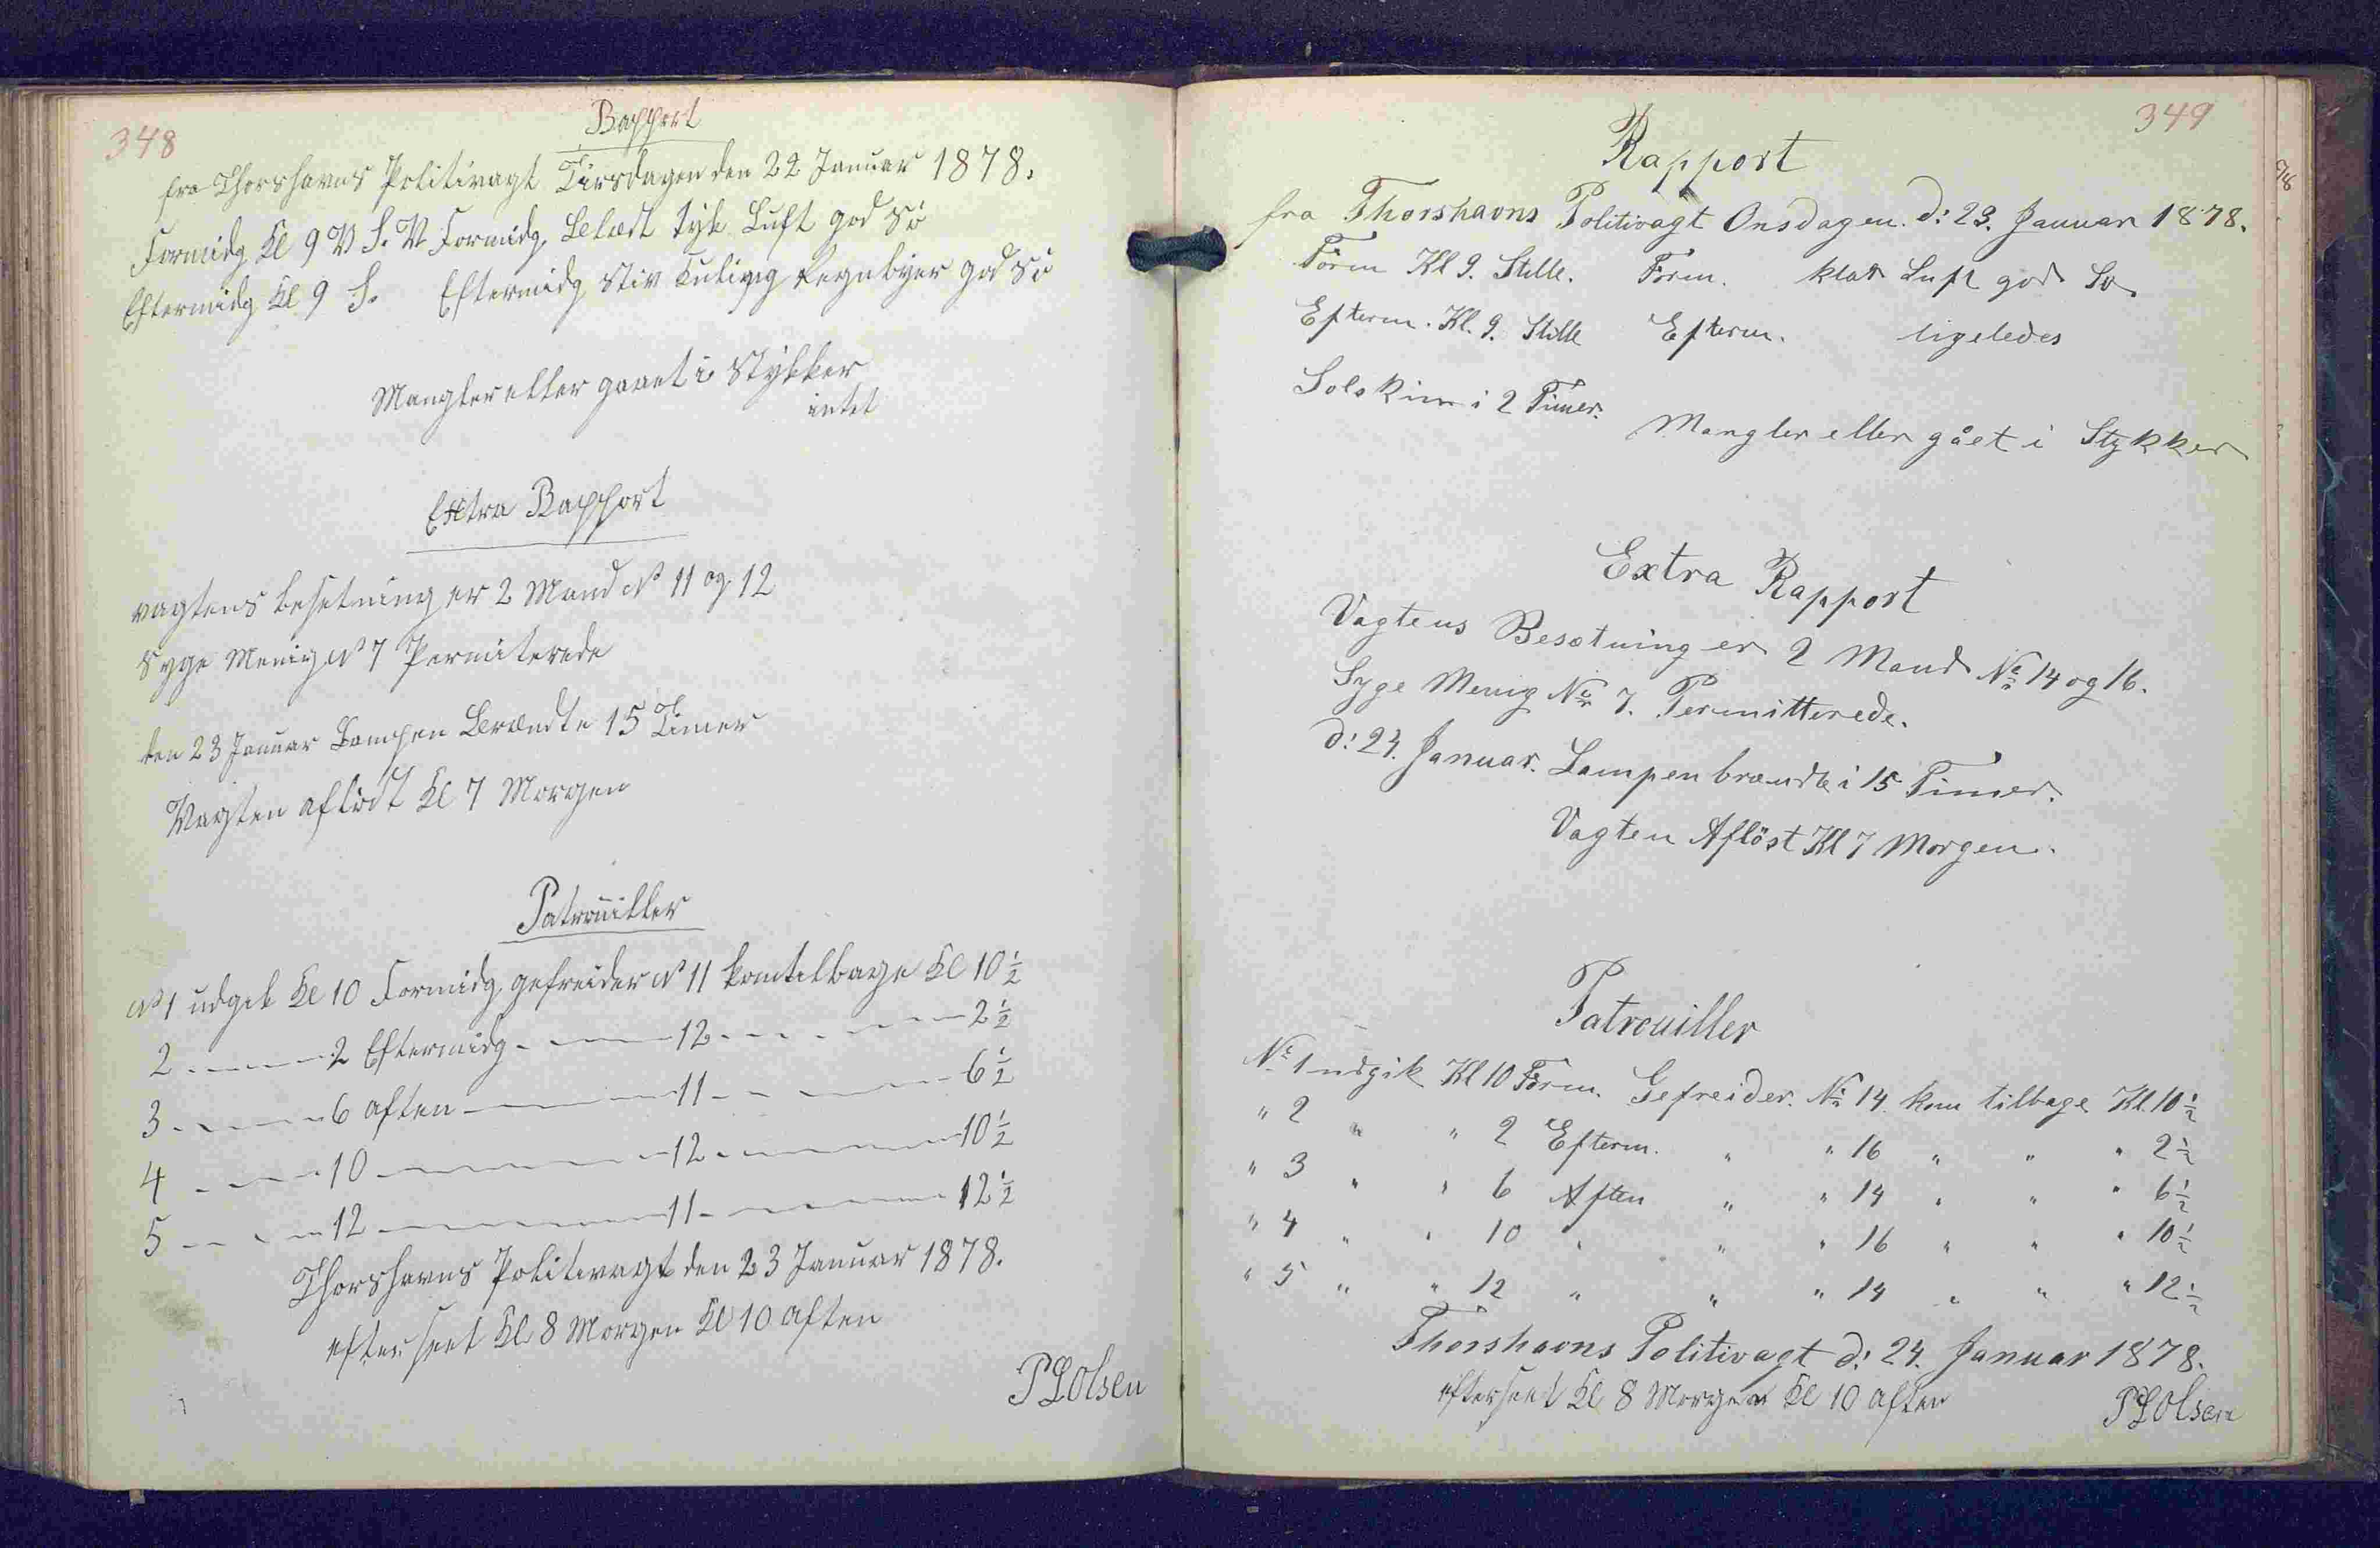 348
Rapport
fra Thorshavns Politivagt Tirsdagen den 22 Januar 1878.
Formidg Kl 9 V S. V Formidg. Belædt tyk Luft god Sö
Eftermidg Kl 9 S. Eftermidg Stiv Kuling Regnbyer god Sö
Mangler eller gaaet i Stykker
intet
Extra Rapport
vagtens besetning er 2 Mand No 11 og 12
Syge Menig No 7 Permiterede
den 23 Januar Lampen Brændte 15 Timer
Vagten aflöst Kl 7 Morgen
Patrouiller
No 1 udgik Kl 10 Formidg gefreider No 11 kom tilbage Kl 10 1/2
2 - - - 2 Eftermidg - - - 12 - - - 2 1/2
3 - - - 6 aften - - - 11 - - - 6 1/2
4 - - - 10 - - - 12 - - - 10 1/2
5 - - - 12 - - - 11 - - - 12 1/2
Thorshavns Politivagt den 23 Januar 1878.
efterseet Kl 8 Morgen Kl 10 aften
P L Olsen
349
Rapport
fra Thorshavns Politivagt Onsdagen d: 23. Januar 1878.
Form Kl 9. Stille. Form. klar Luft god Sö.
Efterm. Kl. 9. Stille Efterm. ligeledes
Solskin i 2 Timer.
Mangler eller gået i Stykker
Extra Rapport
Vagtens Besætning er 2 Mand No 14 og 16.
Syge Menig No 7. Permitterede.
d: 24. Januar. Lampen brændte i 15 Timer.
Vagten Aflöst Kl 7 Morgen.
Patrouiller
No 1 udgik Kl 10 Form. Gefreider. No 14 kom tilbage Kl. 10 1/2
" 2 " " 2 Efterm. " " 16 " " " 2 1/2
" 3 " " 6 Aften " " 14 " " " 6 1/2
" 4 " " 10 " " " 16 " " " 10 1/2
" 5 " " 12 " " " 14 " " " 12 1/2
Thorshavns Politivagt d: 24. Januar 1878.
efterseet Kl 8 Morgen Kl 10 aften
P L Olsen